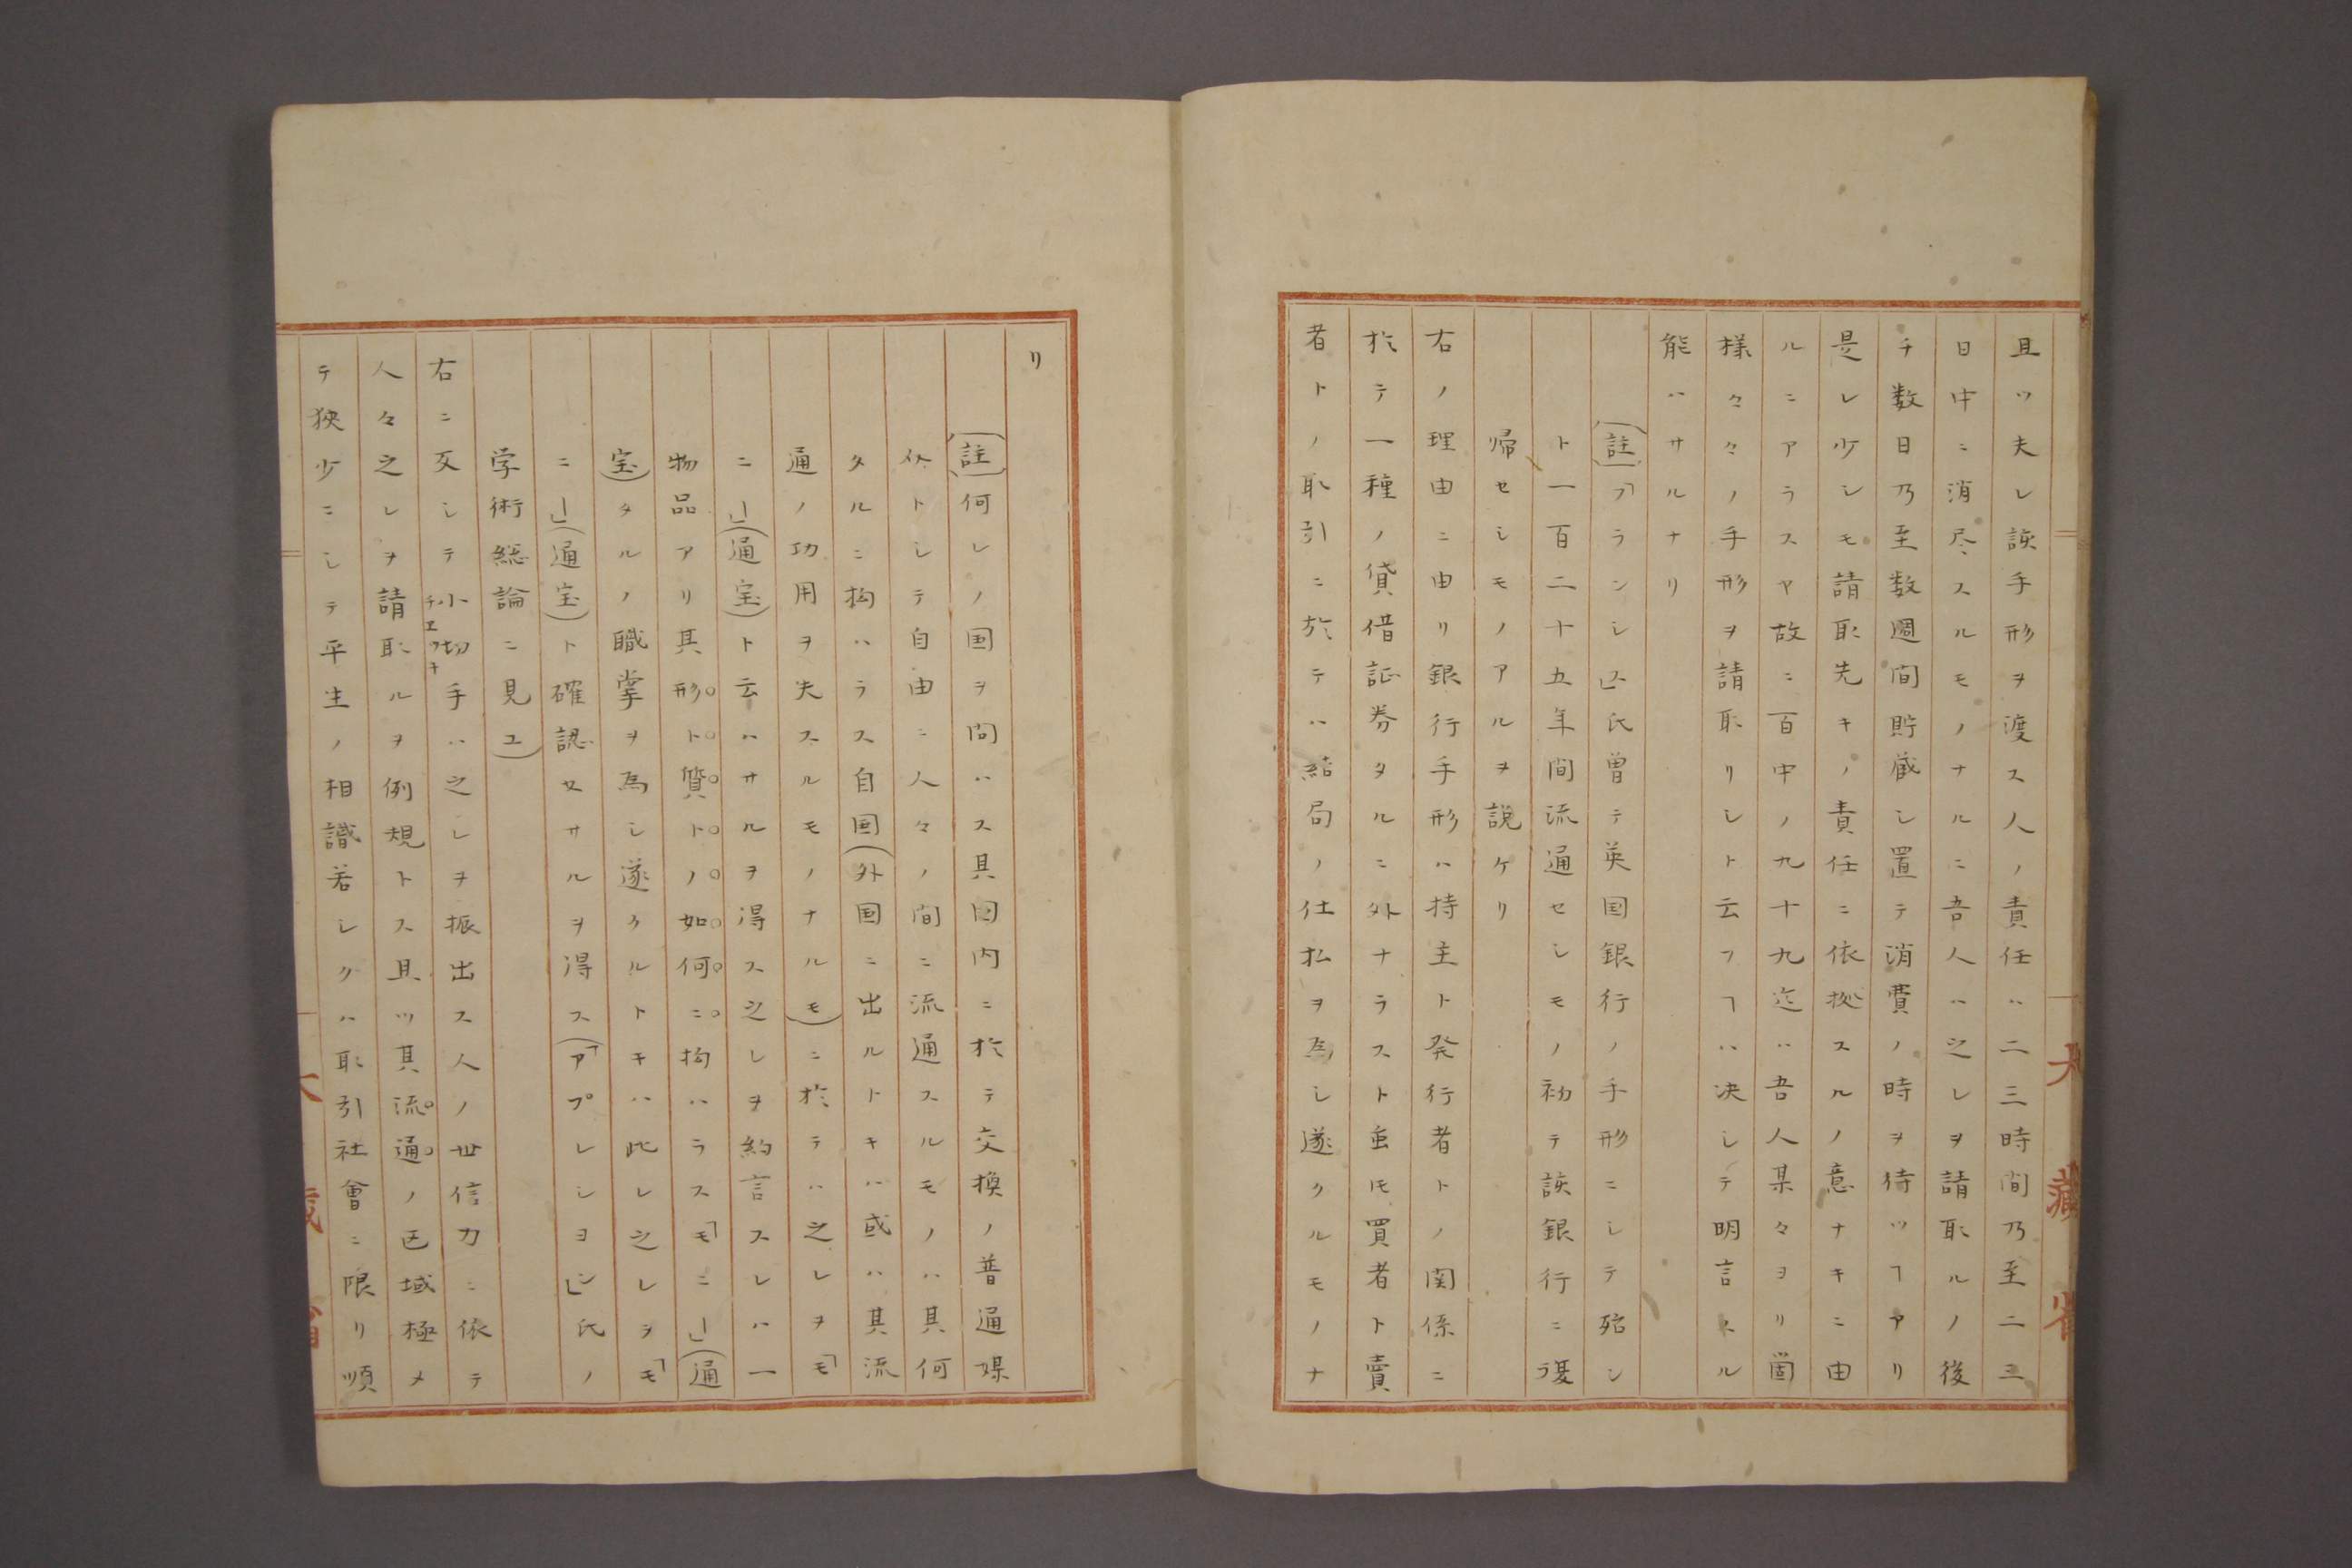 且ツ夫レ該手形ヲ渡ス人ノ責任ハ二三時間乃至二三
日中ニ消尽スルモノナルニ吾人ハ之レヲ請取ルノ後
チ数日乃至数週間貯蔵シ置テ消費ノ時ヲ待ツヿアリ
是レ少シモ請取先キノ責任ニ依拠スルノ意ナキニ由
ルニアラスヤ故ニ百中ノ九十九迄ハ吾人某々ヨリ箇
様々々ノ手形ヲ請取リシト云フヿハ决シテ明言スル
能ハサルナリ
(註)「フランシ」氏曽テ英国銀行ノ手形ニシテ殆ン
ト一百二十五年間流通セシモノ初テ該銀行ニ復
帰セシモノアルヲ説ケリ
右ノ理由ニ由リ銀行手形ハ持主ト発行者トノ関係ニ
於テ一種ノ貸借証券タルニ外ナラスト虽㕝買者ト賣
者トノ取引ニ於テハ結局ノ仕払ヲ為シ遂クルモノナ
リ
(註)何レノ国ヲ問ハス其国内ニ於テ交換ノ普通媒
介トシテ自由ニ人々ノ間ニ流通スルモノハ其何
タルニ拘ハラス自国(外国ニ出ルトキハ或ハ其流
通ノ功用ヲ失スルモノナルモ)ニ於テハ之レヲ「モ
ニー」(通宝)ト云ハサルヲ得ス之レヲ約言スレハ一
物品アリ其形ト質トノ如何ニ拘ハラス「モニー」(通
宝)タルノ職掌ヲ為シ遂クルトキハ此レ之レヲ「モ
ニー」(通宝)ト確認セサルヲ得ス(「アプレシヨン」氏ノ
学術総論ニ見ユ)
右ニ反シテ小切手ハ之レヲ振出ス人ノ世信力ニ依テ
チヱツキ
人々之レヲ請取ルヲ例規トス且ツ其流通ノ区域極メ
テ狭少ニシテ平生ノ相識若シクハ取引社會ニ限リ順
大藏省